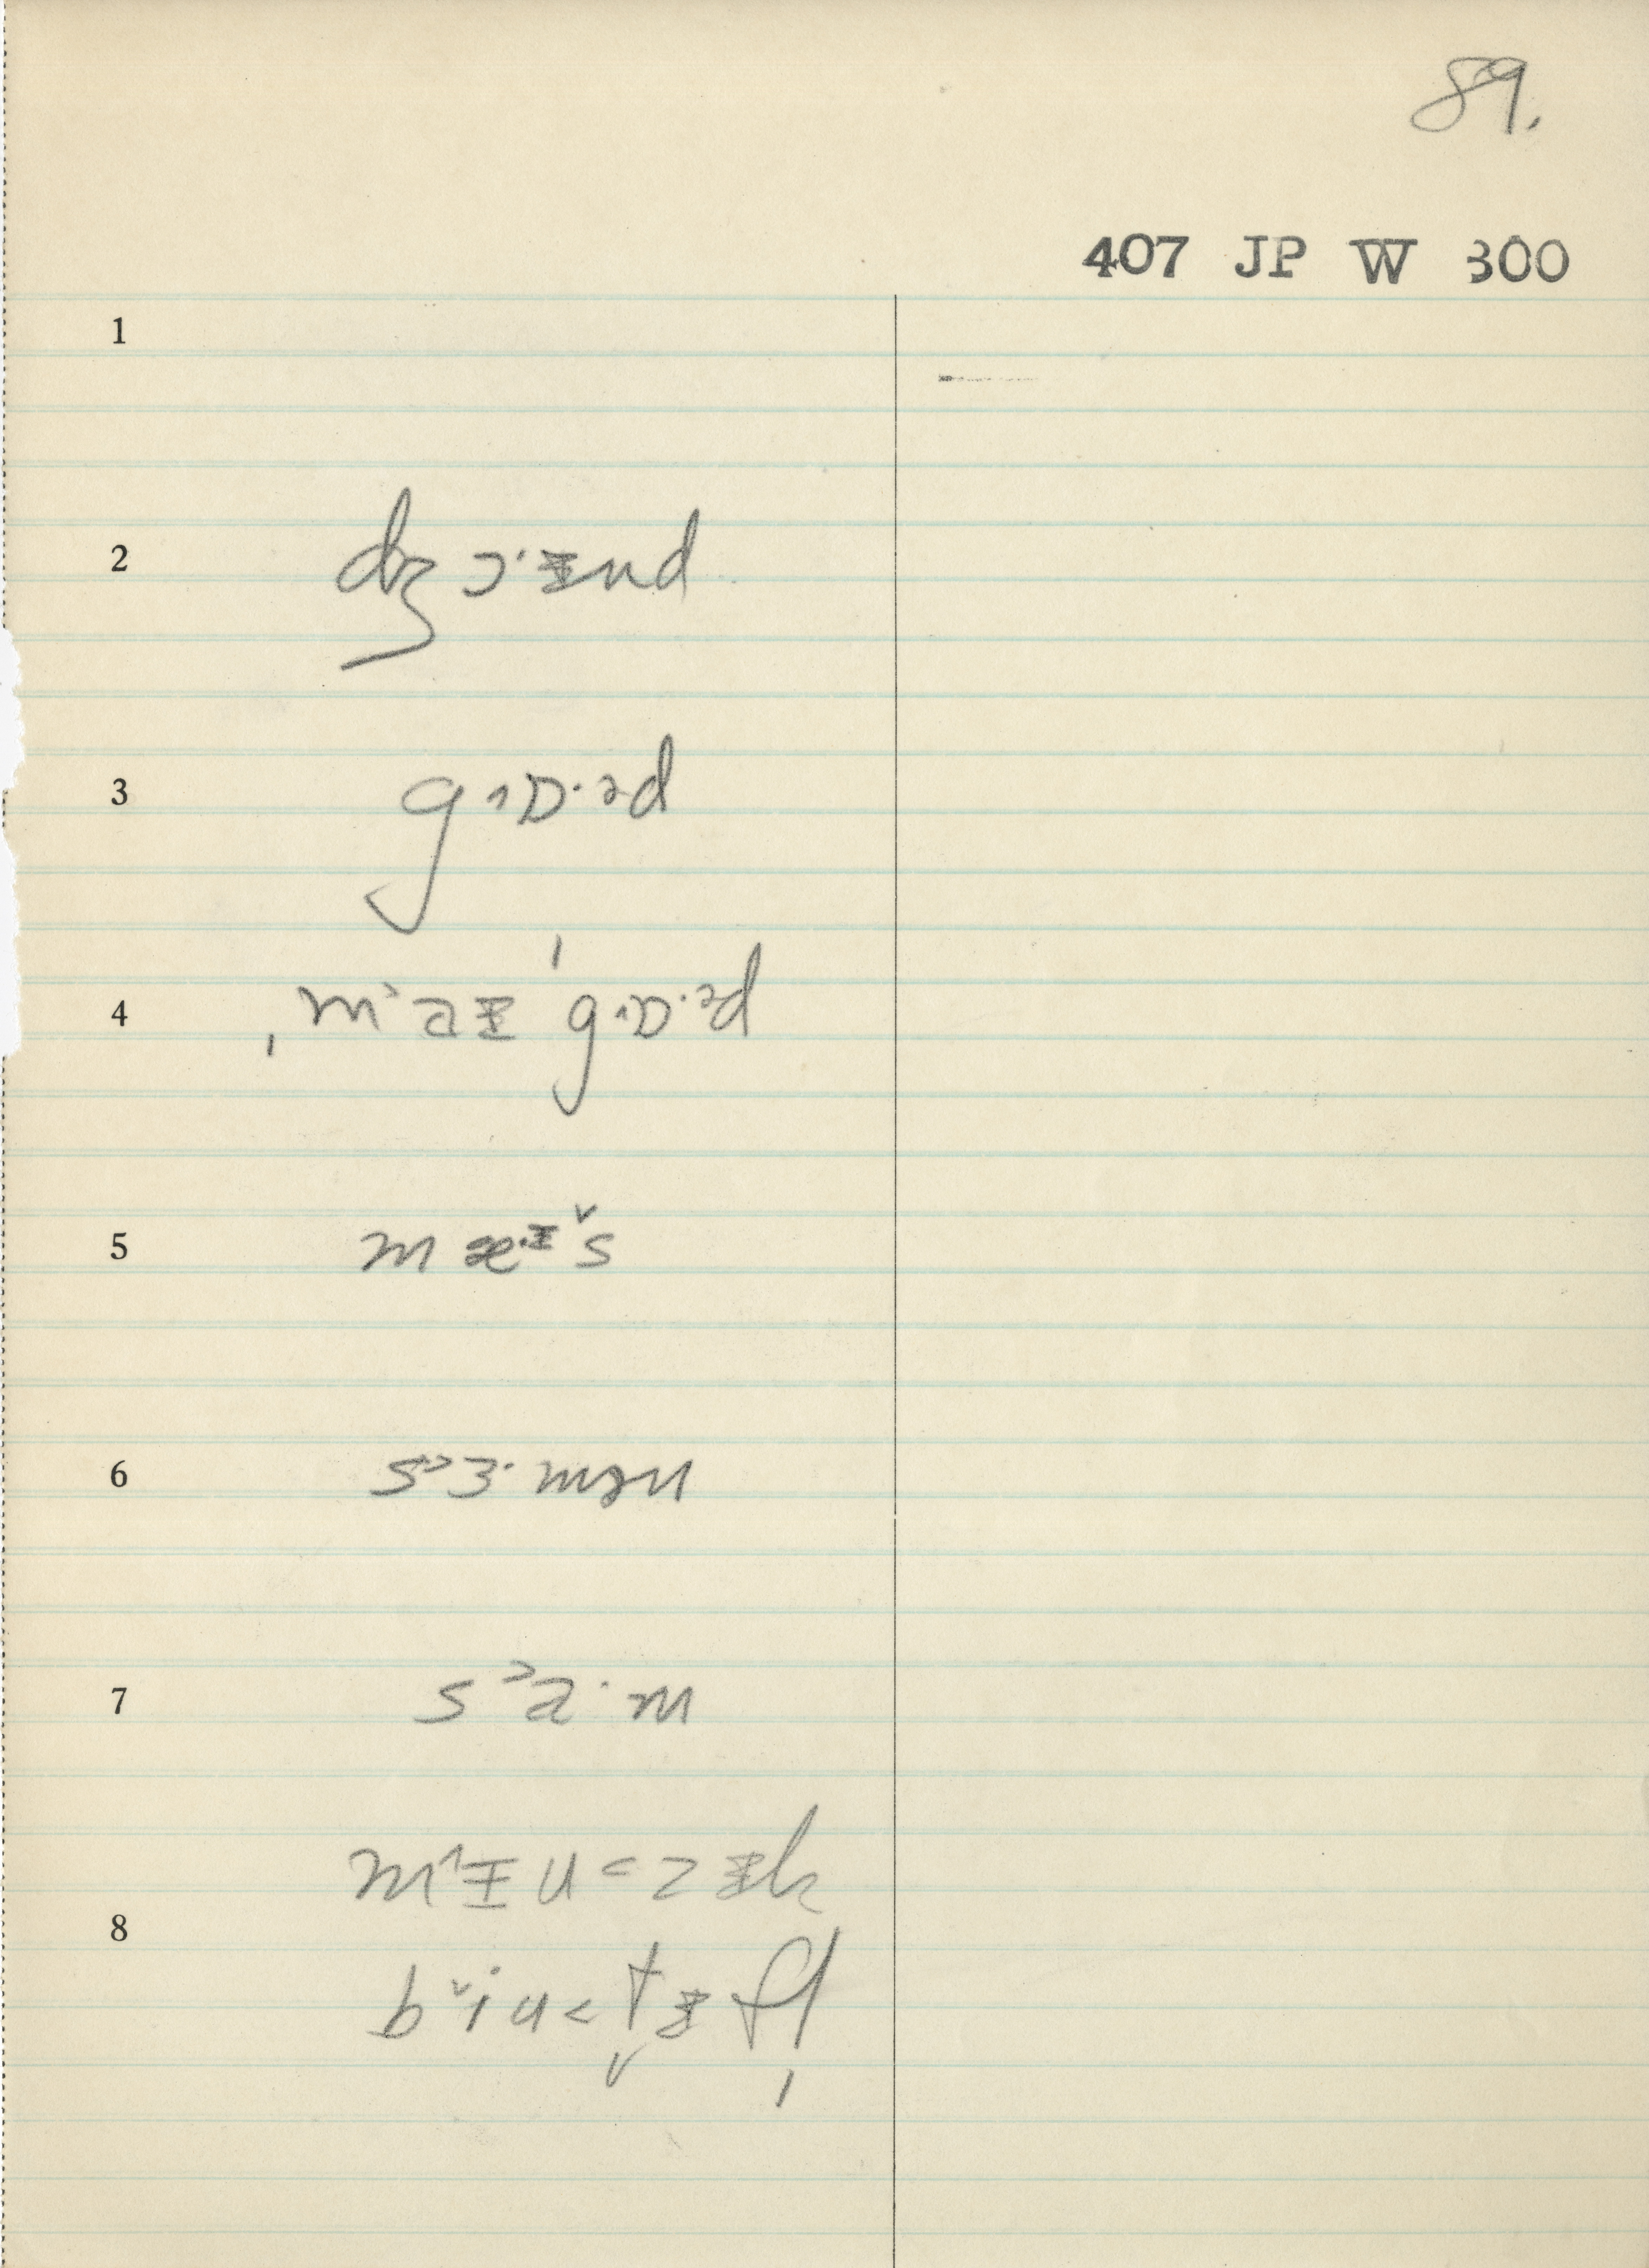 89.
407 JP W 300
1
2 dʒɔ·ɪnd
3 g˄ɒ·əd
4 ˌm˃aɪ ˈg˄ɒ·əd
5 mæ·ɪ š
6 s˃ɜ·mən
7 s˃a·m
m˄ɪu˂zɪk
8 b˅iu˂t̬ɪfl̩